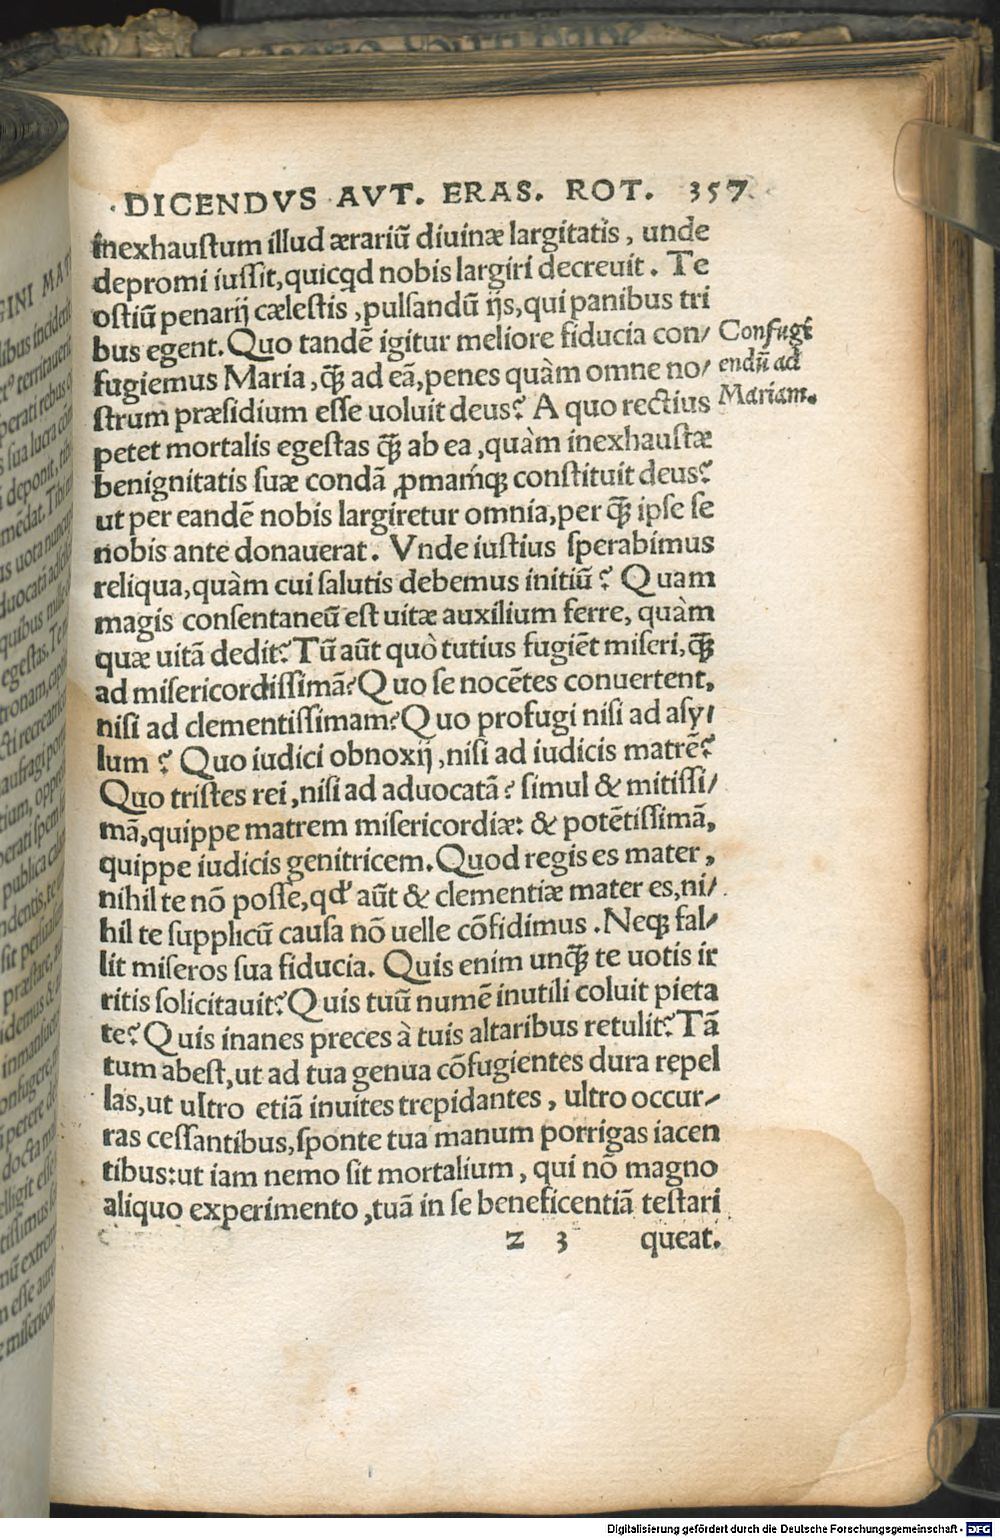 DICENDVS AVT. ERAS. ROT. 357
inexhaustum illud ærariũ diuinæ largitatis, unde
depromi iussit, quicqd nobis largiri decreuit. Te
ostiũ penarij cælestis, pulsandũ ijs, qui panibus tri
bus egent. Quo tandẽ igitur meliore fiducia con/
fugiemus Maria, q̃ ad eã, penes quàm omne no/
strum præsidium esse uoluit deus? A quo rectius
petet mortalis egestas q̃ ab ea, quàm inexhaustæ
benignitatis suæ condã ꝓmamq́ꝫ constituit deus?
ut per eandẽ nobis largiretur omnia, per q̃ ipse se
nobis ante donauerat. Vnde iustius sperabimus
reliqua, quàm cui salutis debemus initiũ? Quam
magis consentaneũ est uitæ auxilium ferre, quàm
quæ uitã dedit? Tũ aũt quò tutius fugiẽt miseri, q̃
ad misericordissimã? Quo se nocẽtes conuertent,
nisi ad clementissimam? Quo profugi nisi ad asy/
lum? Quo iudici obnoxij, nisi ad iudicis matrẽ?
Quo tristes rei, nisi ad aduocatã? simul & mitissi/
mã, quippe matrem misericordiæ: & potẽtissimã,
quippe iudicis genitricem. Quod regis es mater,
nihil te nõ posse, qd' aũt & clementiæ mater es, ni/
hil te supplicũ causa nõ uelle cõfidimus. Neqꝫ fal/
lit miseros sua fiducia. Quis enim unq̃ te uotis ir
ritis solicitauit? Quis tuũ numẽ inutili coluit pieta
te? Quis inanes preces à tuis altaribus retulit? Tã
tum abest, ut ad tua genua cõfugientes dura repel
las, ut ultro etiã inuites trepidantes, ultro occur/
ras cessantibus, sponte tua manum porrigas iacen
tibus: ut iam nemo sit mortalium, qui nõ magno
aliquo experimento, tuã in se beneficentiã testari
z 3 queat.
Confugi
endũ ad
Mariam.
Digitalisierung gefördert durch die Deutsche Forschungsgemeinschaft - DFG